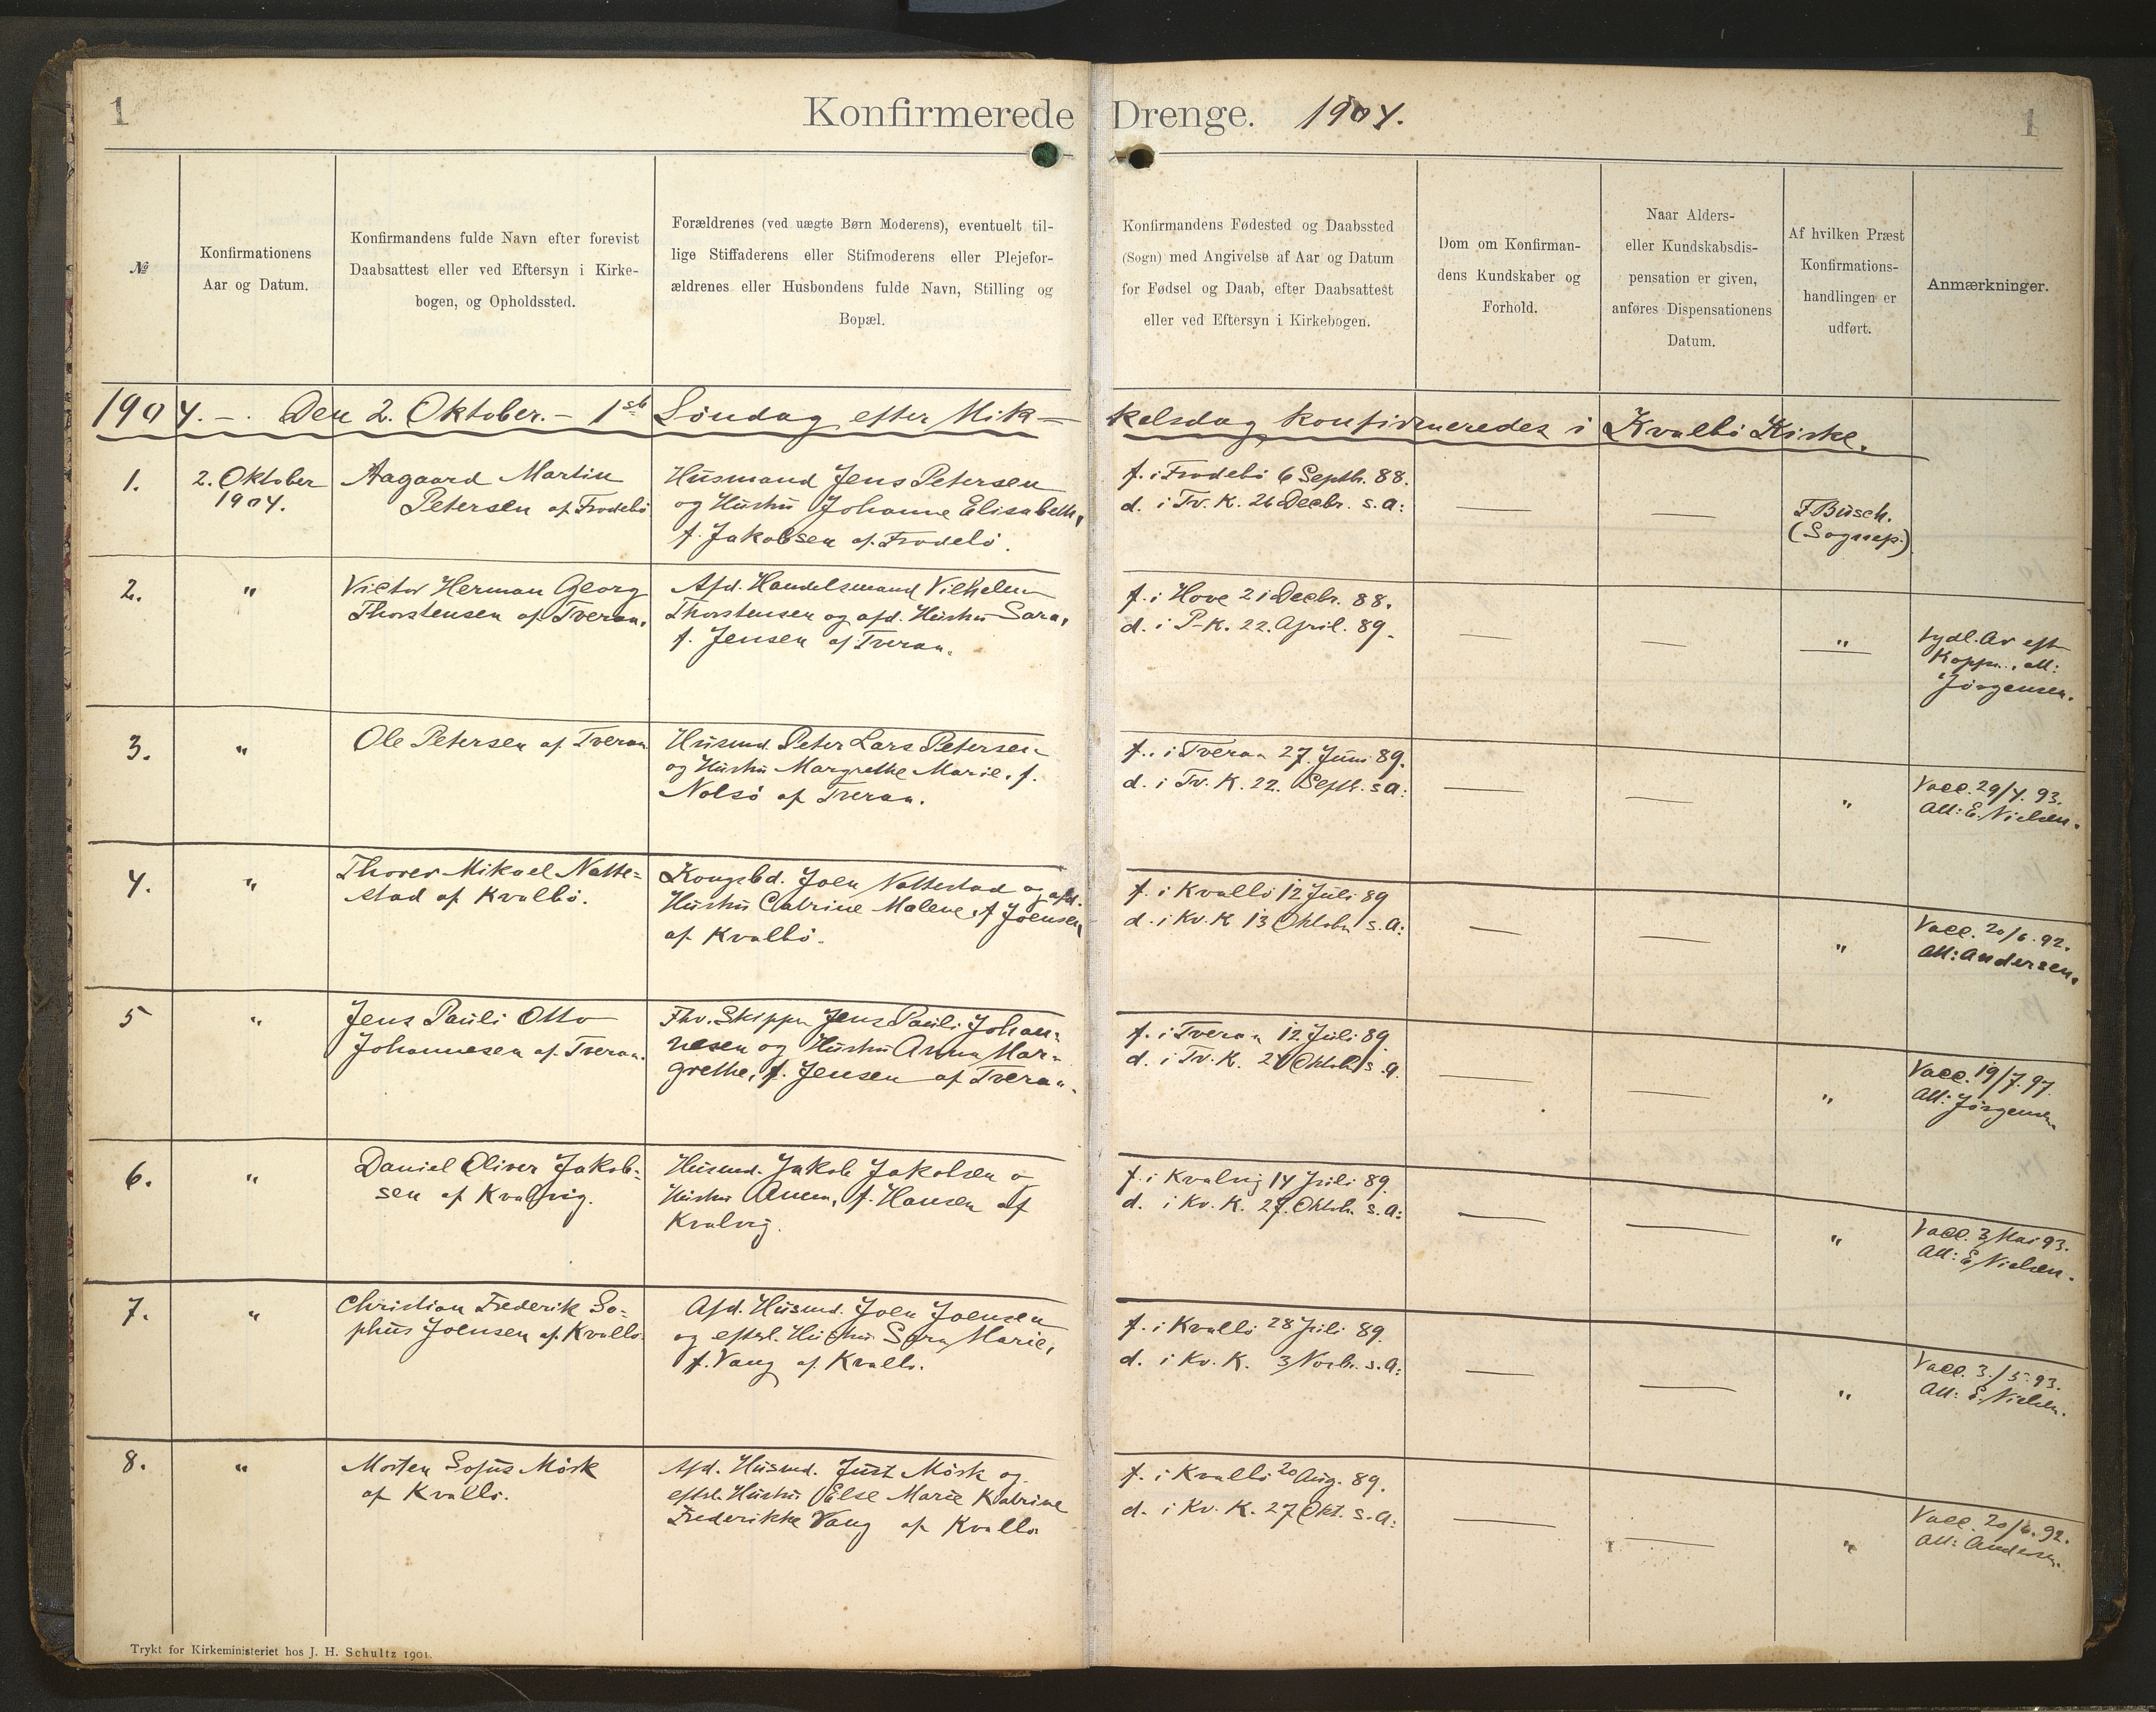 1
Konfirmerede Drenge. 1904.
1
№
Konfirmationens
Aar og Datum.
Konfirmandens fulde Navn efter forevist
Daabsattest eller ved Eftersyn i Kirke-
bogen, og Opholdssted.
Forældrenes (ved uægte Børn Moderens), eventuelt til-
lige Stiffaderens eller Stifmoderens eller Plejefor-
ældrenes eller Husbondens fulde Navn, Stilling og
Bopæl.
Konfirmandens Fødested og Daabssted
(Sogn) med Angivelse af Aar og Datum
for Fødsel og Daab, efter Daabsattest
eller ved Eftersyn i Kirkebogen.
Dom om Konfirman-
dens Kundskaber og
Forhold.
Naar Alders-
eller Kundskabsdis-
pensation er given,
anføres Dispensationens
Datum.
Af hvilken Præst
Konfirmations-
handlingen er
udført.
Anmærkninger.
1904. – . Den 2. Oktober. – 1ste Søndag efter Mik=
kelsdag konfirmeredes i Kvalbø Kirke.
1.
2. Oktober
1904.
Aagaard Martin
Petersen af Frodebø
Husmand Jens Petersen
og Hustru Johanne Elisabeth,
f. Jakobsen af Frodebø.
f. i Frodebø 6 Septb. 88.
d. i Tv. K. 26 Decbr. s.a:
—
—
F Busch.
(Sognep.)
2.
"
Victor Herman Georg
Thorstensen af Tveraa.
Afd. Handelsmand Vilhelm
Thorstensen og afd. Hustru Sara,
f. Jensen af Tveraa.
f. i Hove 21 Decbr. 88.
d. i P-K. 22. April. 89.
—
—
"
tydl. Ar eft
Kopper, att:
Jørgensen.
3.
"
Ole Petersen af Tveraa
Husmd. Peter Lars Petersen
og Hustru Margrethe Marie, f.
Nolsø af Tveraa.
f. i Tveraa 27. Juni 89.
d. i Tv. K. 22. Septb. s a:
—
—
"
Vacc. 29/4. 93.
Att: E. Nielsen.
4.
"
Thorer Mikael Natte=
stad af Kvalbø.
Kongsbd. Joen Nattestad og afd.
Hustru Catrine Malene, f Joensen
af Kvalbø.
f. i Kvalbø 12 Juli 89
d. i Kv. K 13 Oktobr s. a:
—
—
"
Vacc. 20/6. 92.
Att: Andersen.
5
"
Jens Pauli Otto
Johannesen af Tveraa.
Fhv. Skipper Jens Pauli Johan=
nesen og Hustru Anna Mar=
grethe, f. Jensen af Tveraa.
f. i Tveraa 12 Juli 89.
d. i Tv. K. Oktob. s. a.
—
—
"
Vacc. 19/7. 97.
Att: Jörgensen
6.
"
Daniel Oliver Jakob=
sen af Kvalvig.
Husmd. Jakob Jakobsen o
Hustru Anna, f. Hansen af
Kvalvig.
f. i Kvalvig 14 Juli 89.
d. i Kv. K. 27. Oktob. s. a:
—
—
"
Vacc. 3 Mai 93.
Att: E. Nielsen.
7.
"
Christian Frederik So=
phus Joensen af Kvalbø
Afd. Husmd. Joen Joensen
og efterl. Hustru Sara Marie,
f. Vang af Kvalb.
f. i Kvalbø 28 Juli 89.
d. i Kv. K. 3 Novb. s. a:
—
—
"
Vacc. 3./5. 93.
Att: E. Nielsen.
8.
"
Morten Sofus Mørk
af Kvalbø.
Afd. Husmd. Just Mørk og
efterl. Hustru Else Marie Katrine
Frederikke Vang af Kvalbø
f. i Kvalbø 20 Aug. 89.
d. i Kv. K. 27 Okt. s. a:
—
—
"
Vacc. 20/6. 92.
Att: Andersen.
Trykt for Kirkeministeriet hos J. H. Schultz 1901.